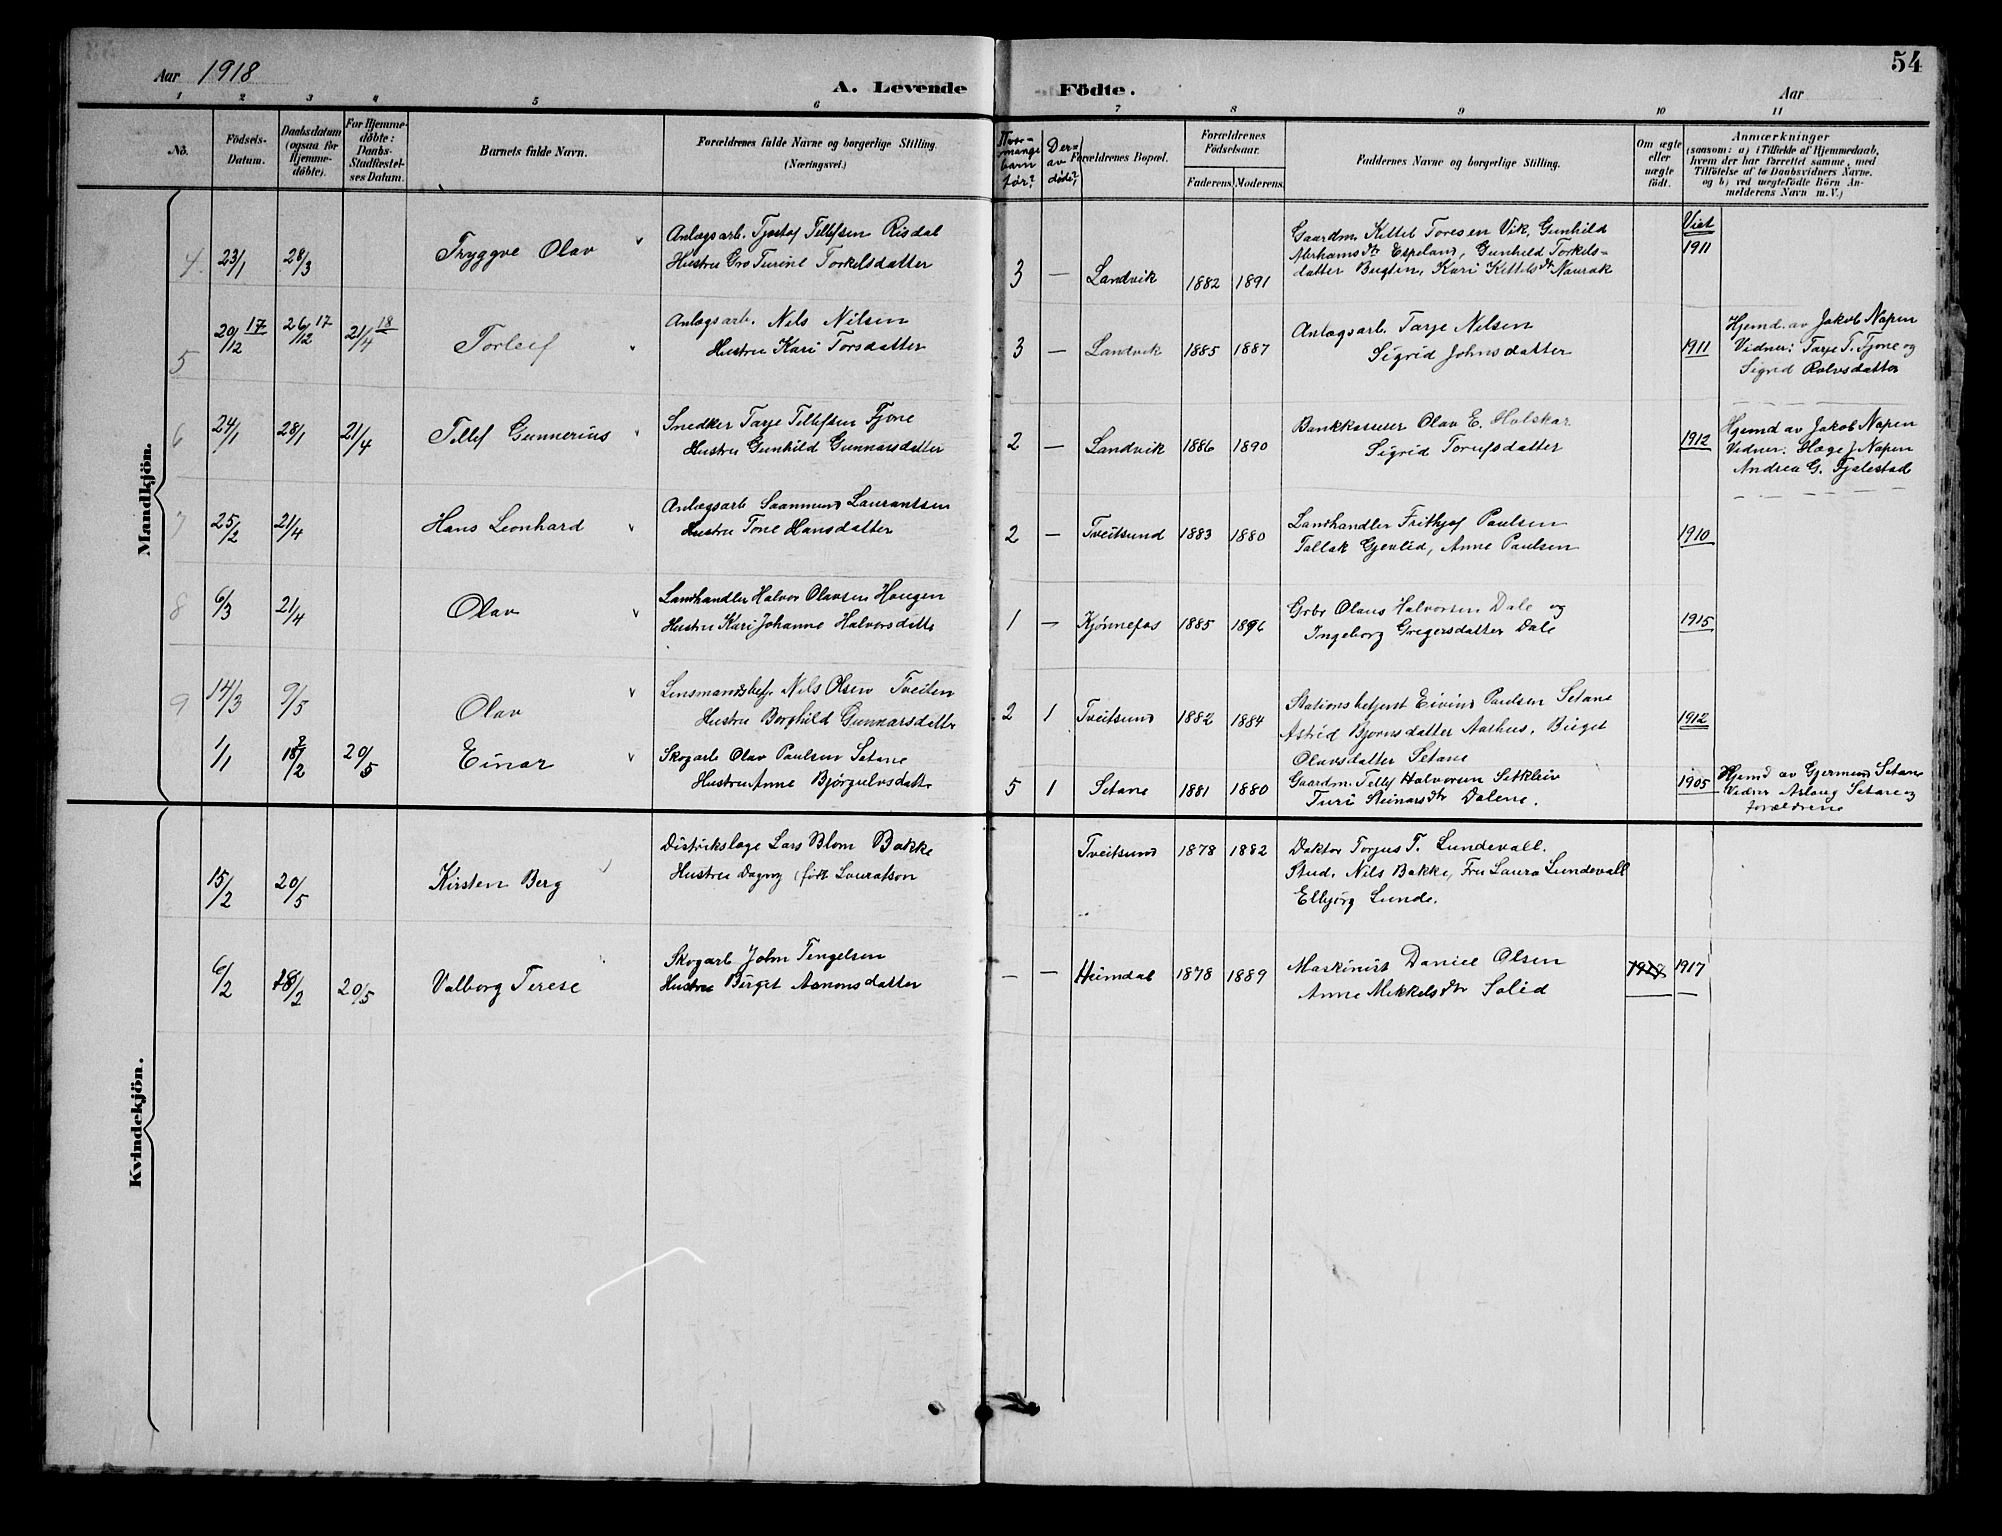 Aar 1918
A. Levende Födte.
Aar
54
1 2 3 4 5 6 7 8 9 10 11
No.
Födsels-
Datum.
Daabsdatum
(ogsaa for
Hjemme-
døbte).
For Hjemme-
døbte:
Daabs-
Stadfæstel-
ses Datum.
Barnets fulde Navn.
Forældrenes fulde Navne og borgerlige Stilling.
(Næringsvei.)
Hvor-
mange
barn
før?
Der-
av
døde?
Forældrenes Bopæl.
Forældrenes
Födselsaar.
Faderens. Moderens.
Faddernes Navne og borgerlige Stilling.
Om ægte
eller
uægte
födt.
Anmærkninger
(saasom: a) i Tilfælde af Hjemmedaab,
hvem der har forrettet samme, med
Tilföielse af to Daabsvidners Navne,
og b) ved uægtefödte Börn An-
melderens Navn m. V.)
Mandkjön.
4. 23/1 28/3 Tryggve Olav
Anlægsarb. Tjostof Tellefsen Risdal
Hustru Gro Turine Torkelsdatter
3 — Landvik 1882 1891
Gaardm. Kittel Toresen Vik, Gunhild
Abrahamsdtr Espeland, Gunhild Torkels-
datter Bugten, Kari Kittelsdtr Naurak
Viet
1911
5 20/12 17 26/12 17 21/4 18 Torleif
Anlægsarb. Nils Nilsen
Hustru Kari Torsdatter
3 — Landvik 1885 1887
Anlægsarb. Tarje Nilsen
Sigrid Johnsdatter
1911
Hjemd. av Jakob Napen
Vidner: Tarje T. Fjone og
Sigrid Rolvsdatter
6 24/1 28/1 21/4 Tellef Gunnerius
Snedker Tarje Tellefsen Fjone
Hustru Gunhild Gunnarsdatter
2 — Landvik 1886 1890
Bankkasserer Olav E. Holskar
Sigrid Torufsdatter
1912
Hjemd av Jakob Napen
Vidner: Hæge J. Napen
Andrea G. Fjalestad
7 25/2 21/4 Hans Leonhard
Anlægsarb Saamund Laurantsen
Hustru Tone Hansdatter
2 — Tveitsund 1883 1880
Landhandler Frithjof Paulsen
Tallak Gjevlid, Anne Paulsen
1910
8 6/3 21/4 Olav
Landhandler Halvor Olavsen Haugen
Hustru Kari Johanne Halvorsdatte
1 — Kjønnefos 1885 1896
Grbr Olaus Halvorsen Dale og
Ingeborg Gregersdatter Dale
1915
9 14/3 9/5 Olav
Lensmandsbetj. Nils Olsen Tveiten
Hustru Borghild Gunnarsdattr
2 1 Tveitsund 1882 1884
Stationsbetjent Eivind Paulsen Setane
Astrid Bjornsdatter Aarhus, Birget
Olavsdatter Setane
1912
1/1 18/2 20/5 Einar
Skogarb Olav Paulsen Setane
Hustru Anne Bjørgulvsdatt.
5 1 Setane 1881 1880
Gaardm. Tellef Halvorsen Setkleiv
Turi Steinarsdtr Dalene.
1905
Hjemd av Gjermund Setane
Vidner Aslaug Setane og
forældrene
Kvindekjön.
15/2 20/5 Kirsten Berg
Distrikslæge Lars Blom Bakke
Hustru Dagny født Lauratson
Tveitsund 1878 1882
Doktor Torjus T. Lundevall.
Stud. Nils Bakke, Fru Laura Lundevall
Elbjørg Lunde.
6/2 18/2 20/5 Valborg Terese
Skogarb John Tengelsen
Hustru Birget Aanonsdatter
— — Heimdal 1878 1889
Maskinist Daniel Olsen
Anne Mikkelsdtr Solid
1917